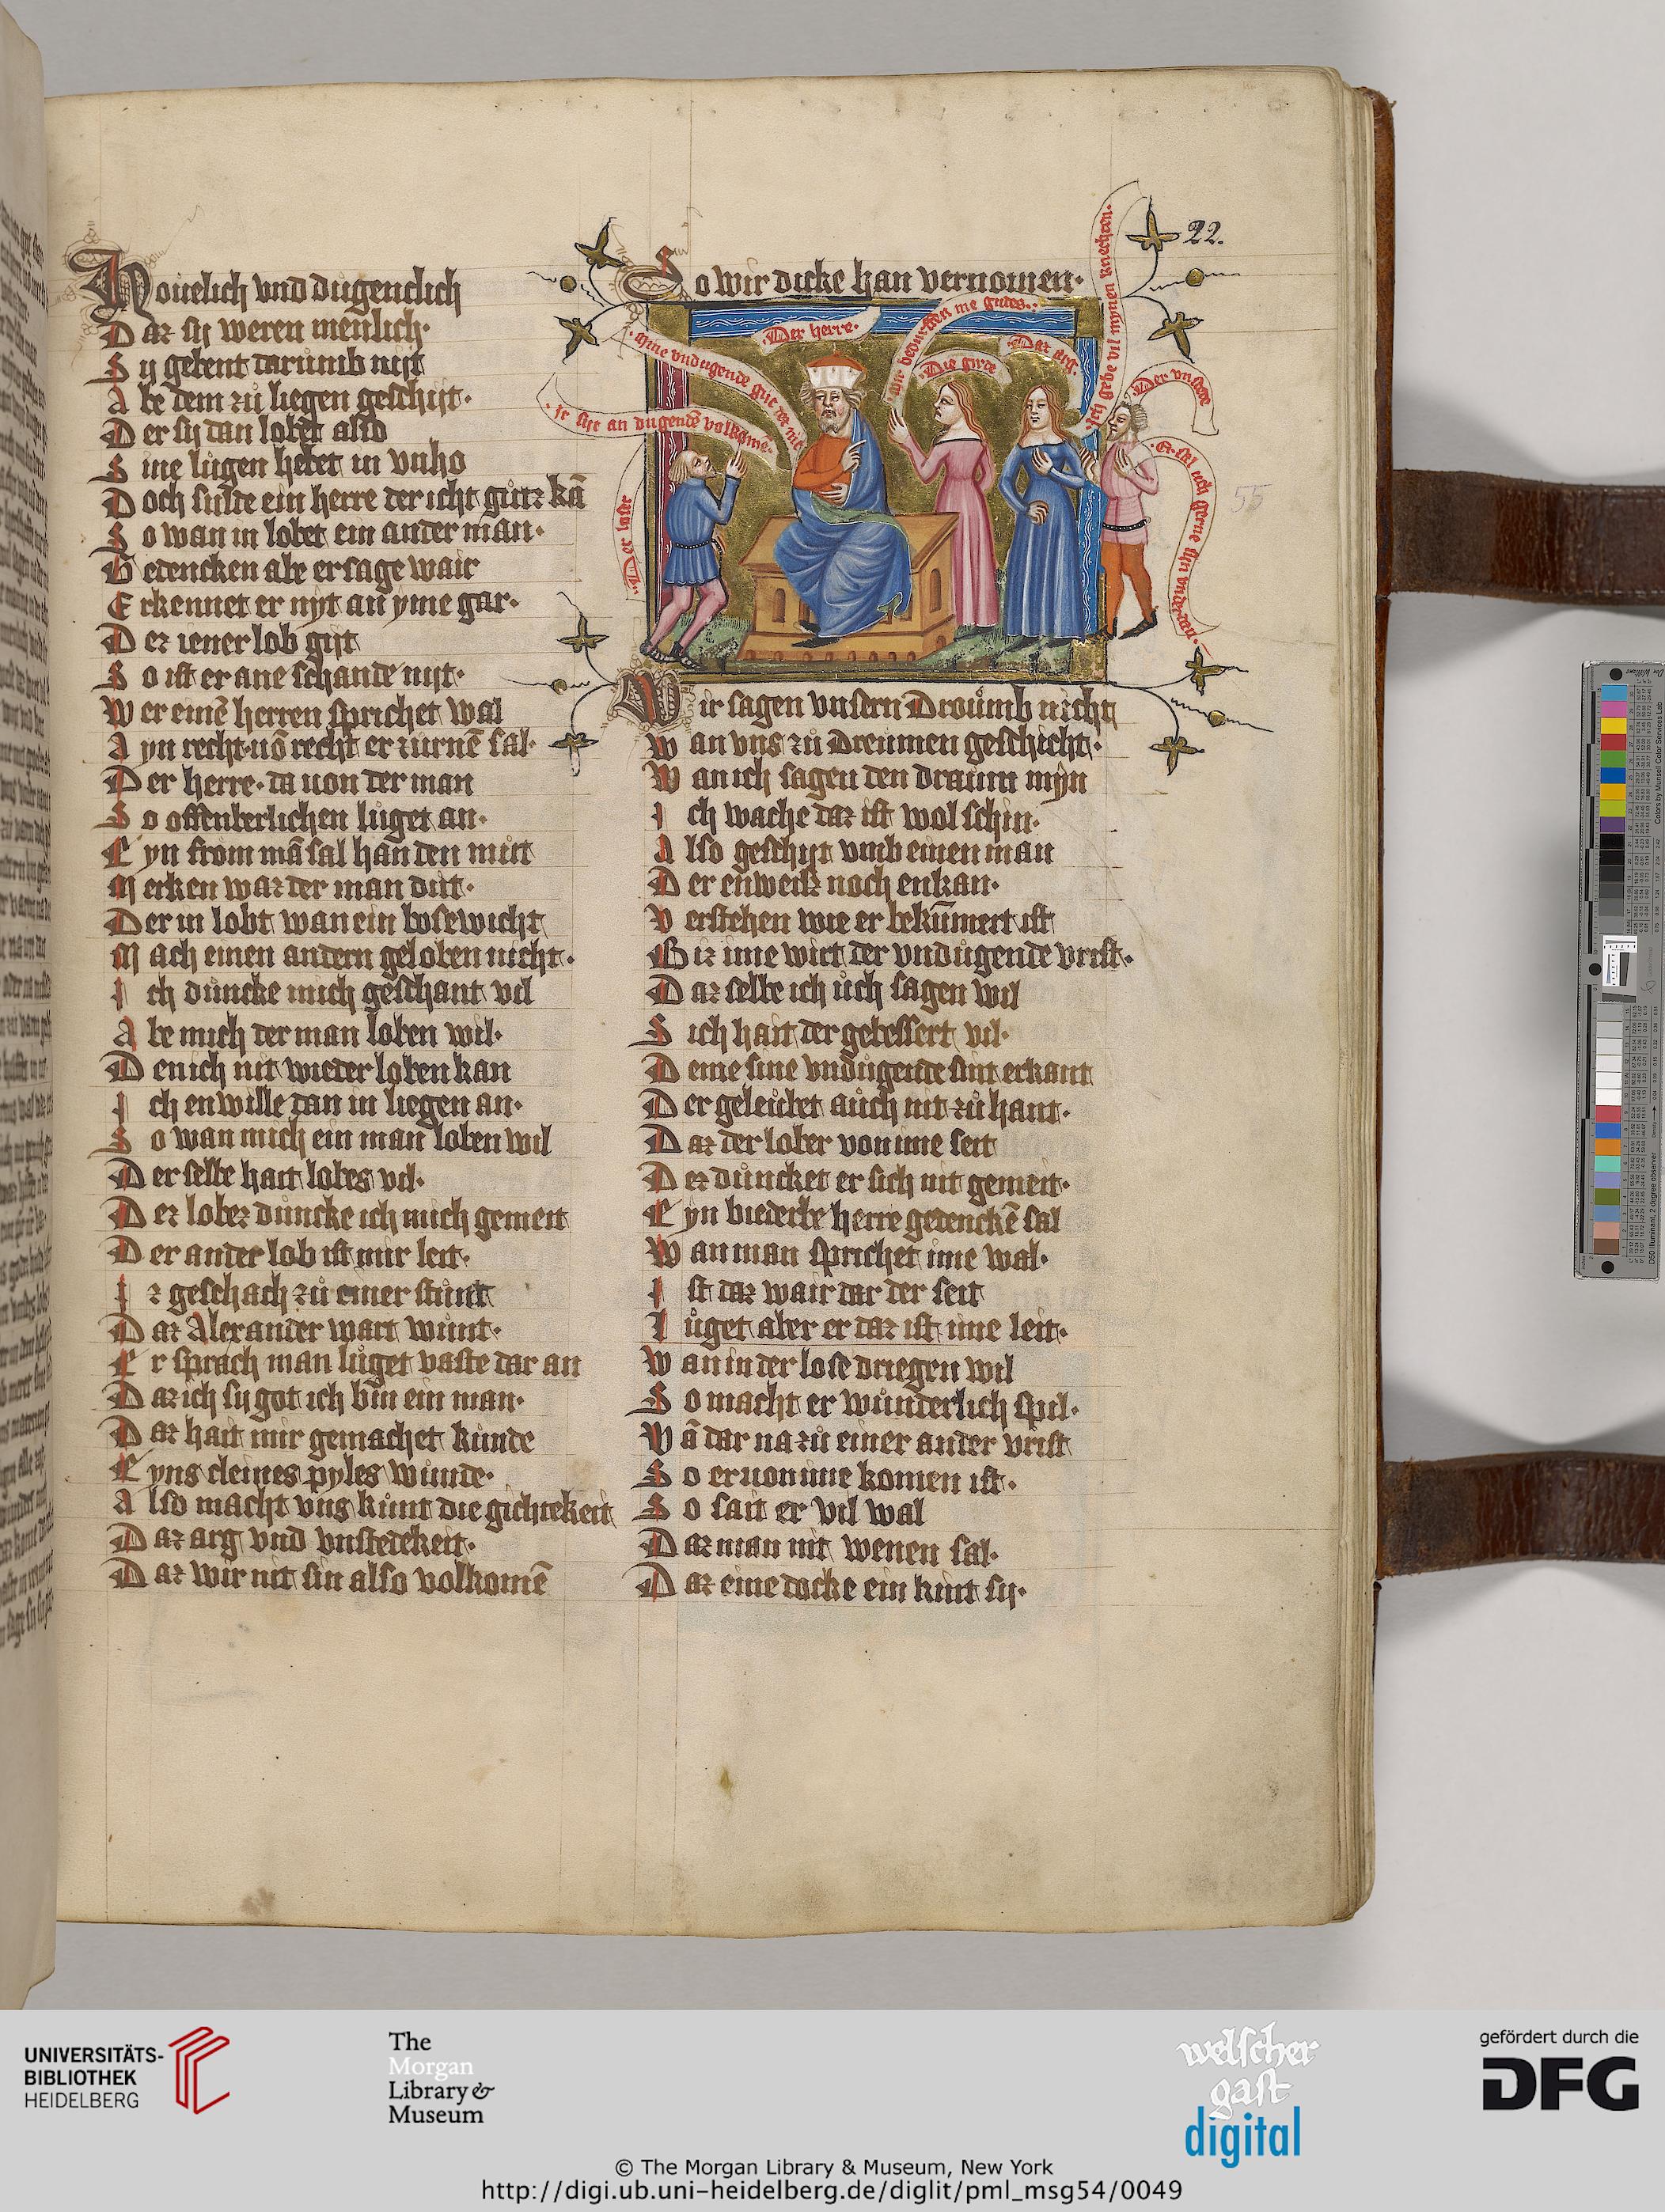 Houelich vnd důgentlich
Daz sij weren menlich·
Sy gebent darůmb nijt
Abe dem zů liegen geschijt·
Der sij dan lobet also
Sine lůgen hebet in vnho
Doch sulte ein herre der icht gůtz kā
So wan in lobet ein ander man·
Bedencken abe er sage wair
Erkennet er nyt an yme gar·
Dez iener lob gijt
So ist er ane schande nijt·
Wer einē herren sprichet wal
Ayn recht·uō recht er zůrnē sal·
Der herre·da uon der man
So offenberlichen lůget an·
Eyn from mā sal han den můt
Merken waz der man důt·
Der in lobt wan ein bosewicht
Mach einen andern geloben nicht·
Ich důncke mich geschant vil
Abe mich der man loben wil·
Den ich nit wieder loben kan
Ich enwille dan in liegen an·
So wan mich ein man loben wil
Der selbe hait lobes vil·
Dez lobez důncke ich mich gemeit
Der ander lob ist mir leit·
Iz geschach zů einer stůnt
Daz Alexander wart wůnt·
Er sprach man lůget vaste dar an
Daz ich sy got ich bin ein man·
Daz hait mir gemachet kůnde
Eyns cleines pyles wůnde·
Also macht vns kůnt die gichtekeit
Daz arg vnd vnstedekeit·
Daz wir nit sin also volkomē
22.
So wir dicke han vernomen·
Der herre·
·Sine vndugende gůt der nit
·Ir sijt an dugendē volkomē·
·Der lober
·wir bedurffen me gudes·:
·Die girde
·Daz arg·
·Ich gebe vil mynen knechten·
·Der vnstede
·Er sal uch gerne sijn vnder
55
Wir sagen vnsern Droůmb nicht
Wan vns zů Dreumen geschicht·
Wan ich sagen den draum mijn
Ich wache daz ist wol schin·
Also geschijt vmb einen man
Der enweiz noch enkan·
Verstehen wie er bekům̄ert ist
Biz ime wirt der vndůgende vrist·
Daz selbe ich ůch sagen wil
Sich hait der gebessert vil·
Deme sine vndůgende sint erkant
Der geleůbet aůch nit zů hant·
Daz der lober von ime seit
Dez důncket er sich nit gemeit·
Eyn biederbe herre gedenckē sal
Wan man sprichet ime wal·
Ist daz wair daz der seit
Lůget aber er daz ist ime leit·
Wan in der lose driegen wil
So macht er wůnderlich spil·
Wā dar na zů einer ander vrist
So er uon ime komen ist·
So sait er vil wal
Daz man nit wenen sal·
Daz eine docke ein kint sij·
UNIVERSITÄTS-
BIBLIOTHEK
HEIDELBERG
The
Morgan
Library &
Museum
welscher
gast
digital
gefördert durch die
DFG
© The Morgan Library & Museum, New York
http://digi.ub.uni-heidelberg.de/diglit/pml_msg54/0049